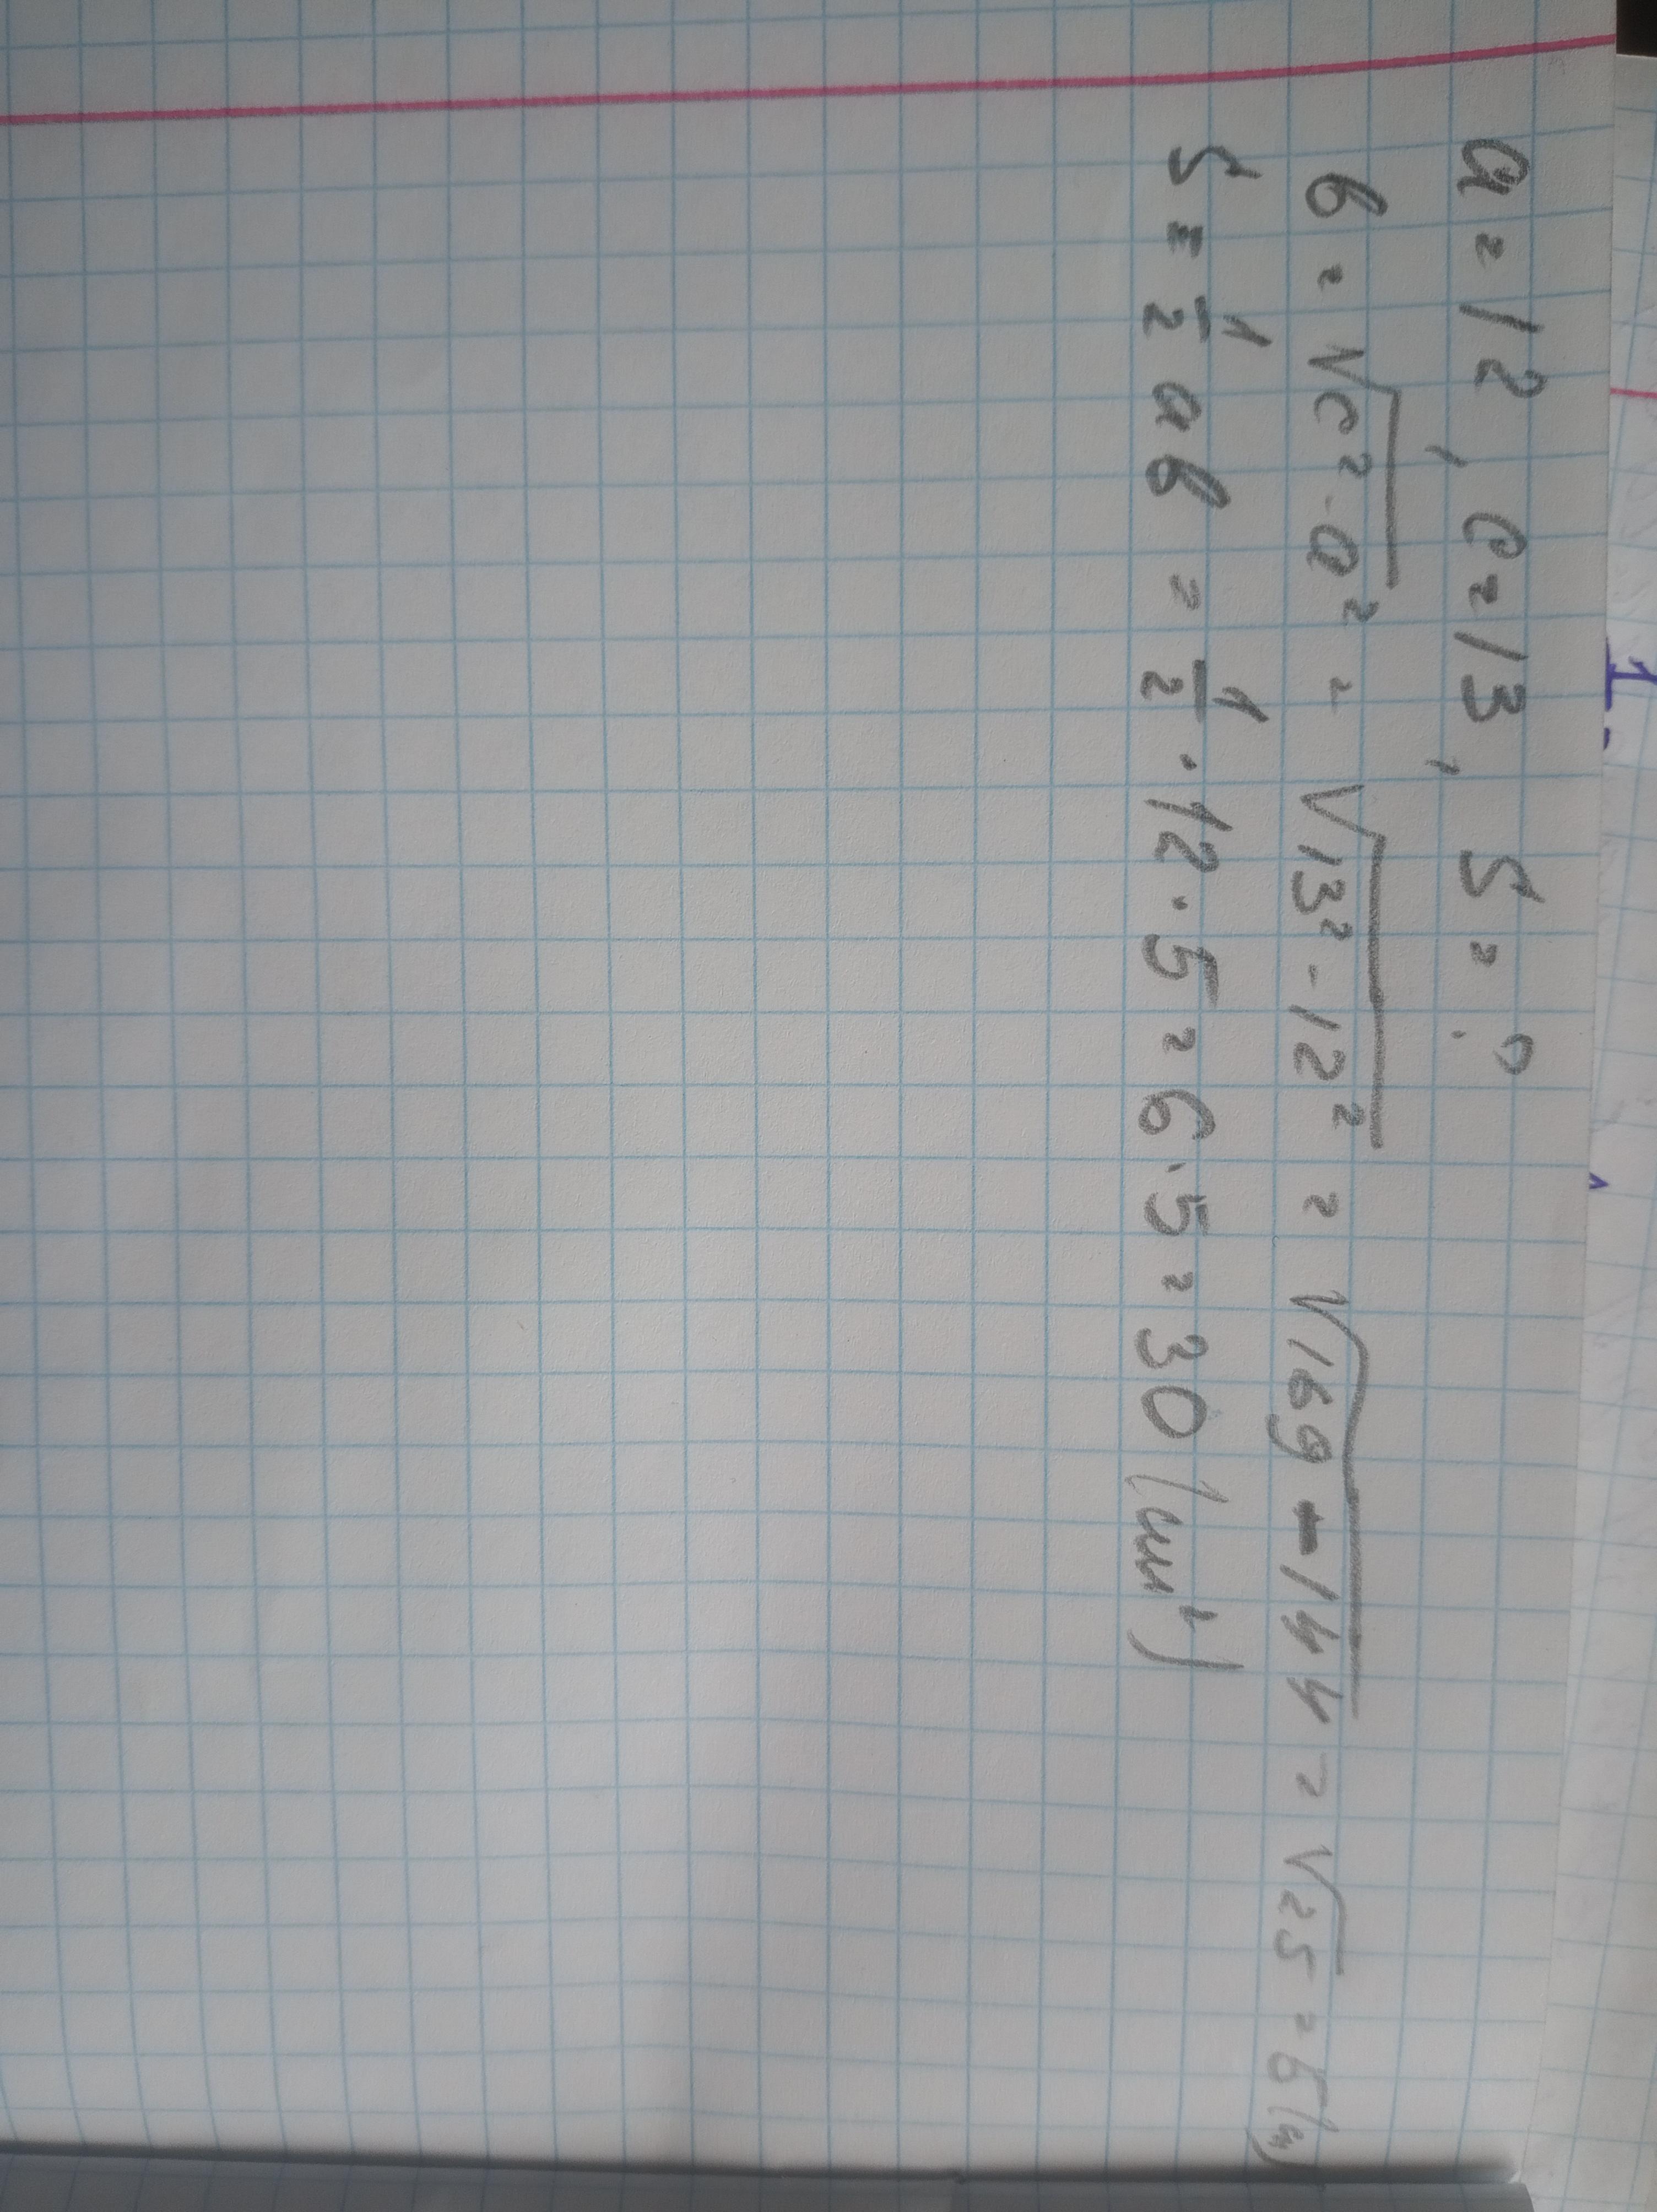 a = 12, c = 13, S = ?
b = √c² - a² = √13² - 12² = √169 - 144 = √25 = 5 (см)
S = 1/2 ab = 1/2 · 12 · 5 = 6 · 5 = 30 (см²)